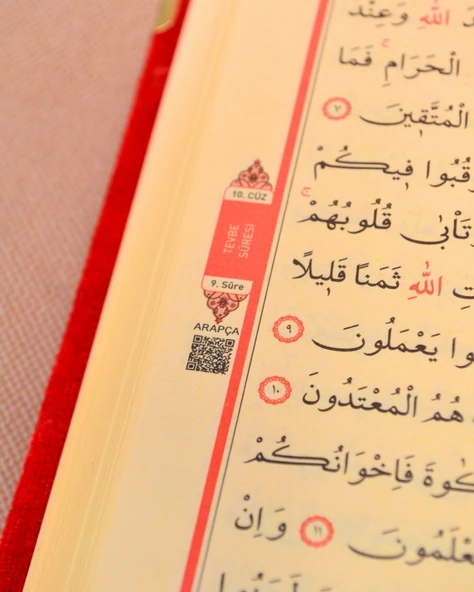 اللّٰهِ وَعِنْدَ
الْحَرَامِ فَمَا
الْمُتَّقٖينَ ٧
فٖيكُمْ
وَتَأْبٰى قُلُوبُهُمْ
اللّٰهِ ثَمَنًا قَلٖيلًا
يَعْمَلُونَ ٩
هُمُ الْمُعْتَدُونَ ١٠
فَاِخْوَانُكُمْ
١١ وَاِنْ
10. CÜZ
TEVBE
SÛRESİ
9. Sûre
ARAPÇA